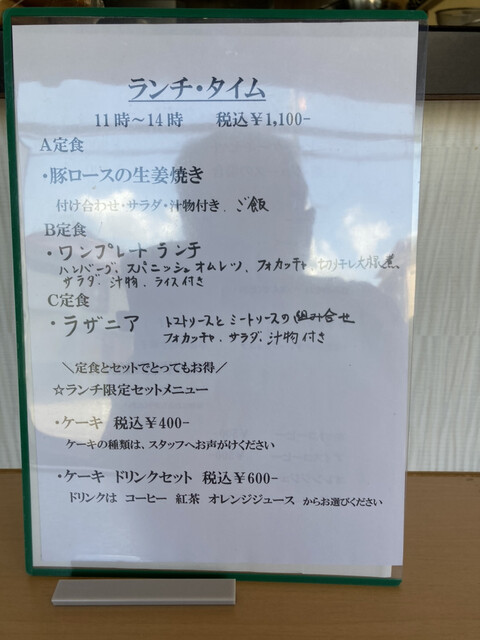 ランチ・タイム
11時～14時　税込￥1,100-
A定食
・豚ロースの生姜焼き
付け合わせ・サラダ・汁物付き、ご飯
B定食
・ワンプレートランチ
ハンバーグ、スパニッシュオムレツ、フォカッチャ、
サラダ、汁物、ライス付き
C定食
・ラザニア　トマトソースとミートソースの組み合せ
フォカッチャ、サラダ、汁物付き
＼定食とセットでとってもお得／
☆ランチ限定セットメニュー
・ケーキ　税込￥400-
ケーキの種類は、スタッフへお声がけください
・ケーキ　ドリンクセット　税込￥600-
ドリンクは　コーヒー　紅茶　オレンジジュース　からお選びください